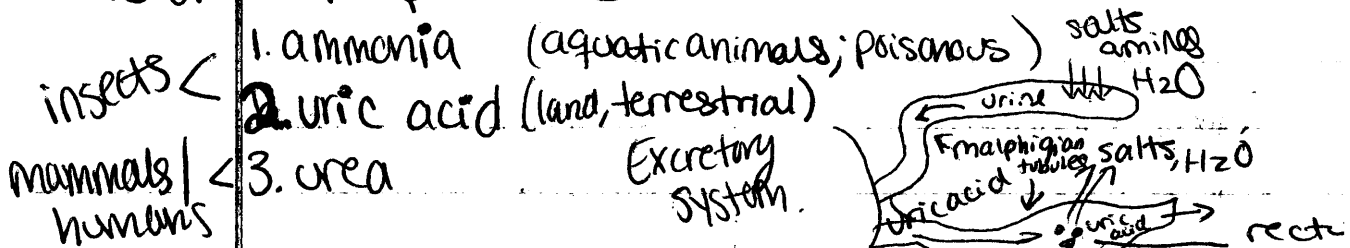 insects <
1. ammonia (aquatic animals; poisonous)
2. uric acid (land, terrestrial)
mammals | humans <
3. urea
Excretory system.
salts
aminos
H2O
urine
malphigian tubules
salts, H2O
uric acid
uric acid